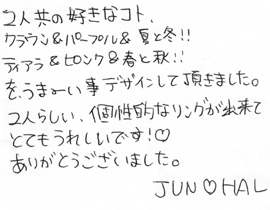 2人共の好きなコト、
クラウン&パープル&夏と冬!!
ティアラ&ピンク&春と秋!!
を、うま〜い事デザインして頂きました。
2人らしい、個性的なリングが出来て
とてもうれしいです!♡
ありがとうございました。
JUN♡HAL